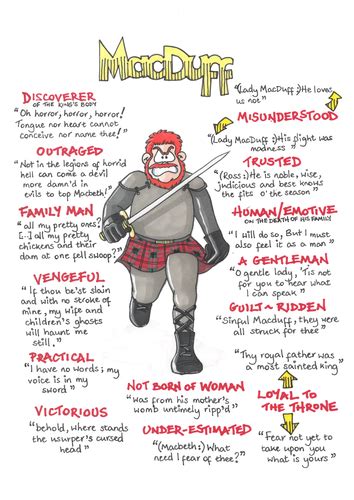 MacDuff
DISCOVERER
OF THE KING'S BODY
"Oh horror, horror, horror!
Tongue nor heart cannot
conceive nor name thee!"
OUTRAGED
"Not in the legions of horrid
hell can come a devil
more damn'd in
evils to top Macbeth!"
FAMILY MAN
"all my pretty ones?
[...] all my pretty
chickens and their
dam at one fell swoop?"
VENGEFUL
"If thou be'st slain
and with no stroke of
mine, my wife and
children's ghosts
will haunt me
still."
PRACTICAL
"I have no words; my
voice is in my
sword"
VICTORIOUS
"behold, where stands
the usurper's cursed
head"
NOT BORN OF WOMAN
"was from his mother's
womb untimely ripp'd"
UNDER-ESTIMATED
"(Macbeth:) What
need I fear of thee?"
"(Lady MacDuff:) He loves
us not"
MISUNDERSTOOD
"(Lady MacDuff:) His flight was
madness"
TRUSTED
"(Ross:) He is noble, wise,
judicious and best knows
the fits o'the season"
HUMAN/EMOTIVE
ON THE DEATH OF HIS FAMILY
"I will do so, But I must
also feel it as a man"
A GENTLEMAN
"O gentle lady, 'Tis not
for you to hear what
I can speak"
GUILT-RIDDEN
"Sinful Macduff, they were
all struck for thee"
"Thy royal father was
a most sainted king"
LOYAL TO
THE THRONE
"Fear not yet to
take upon you
what is yours"